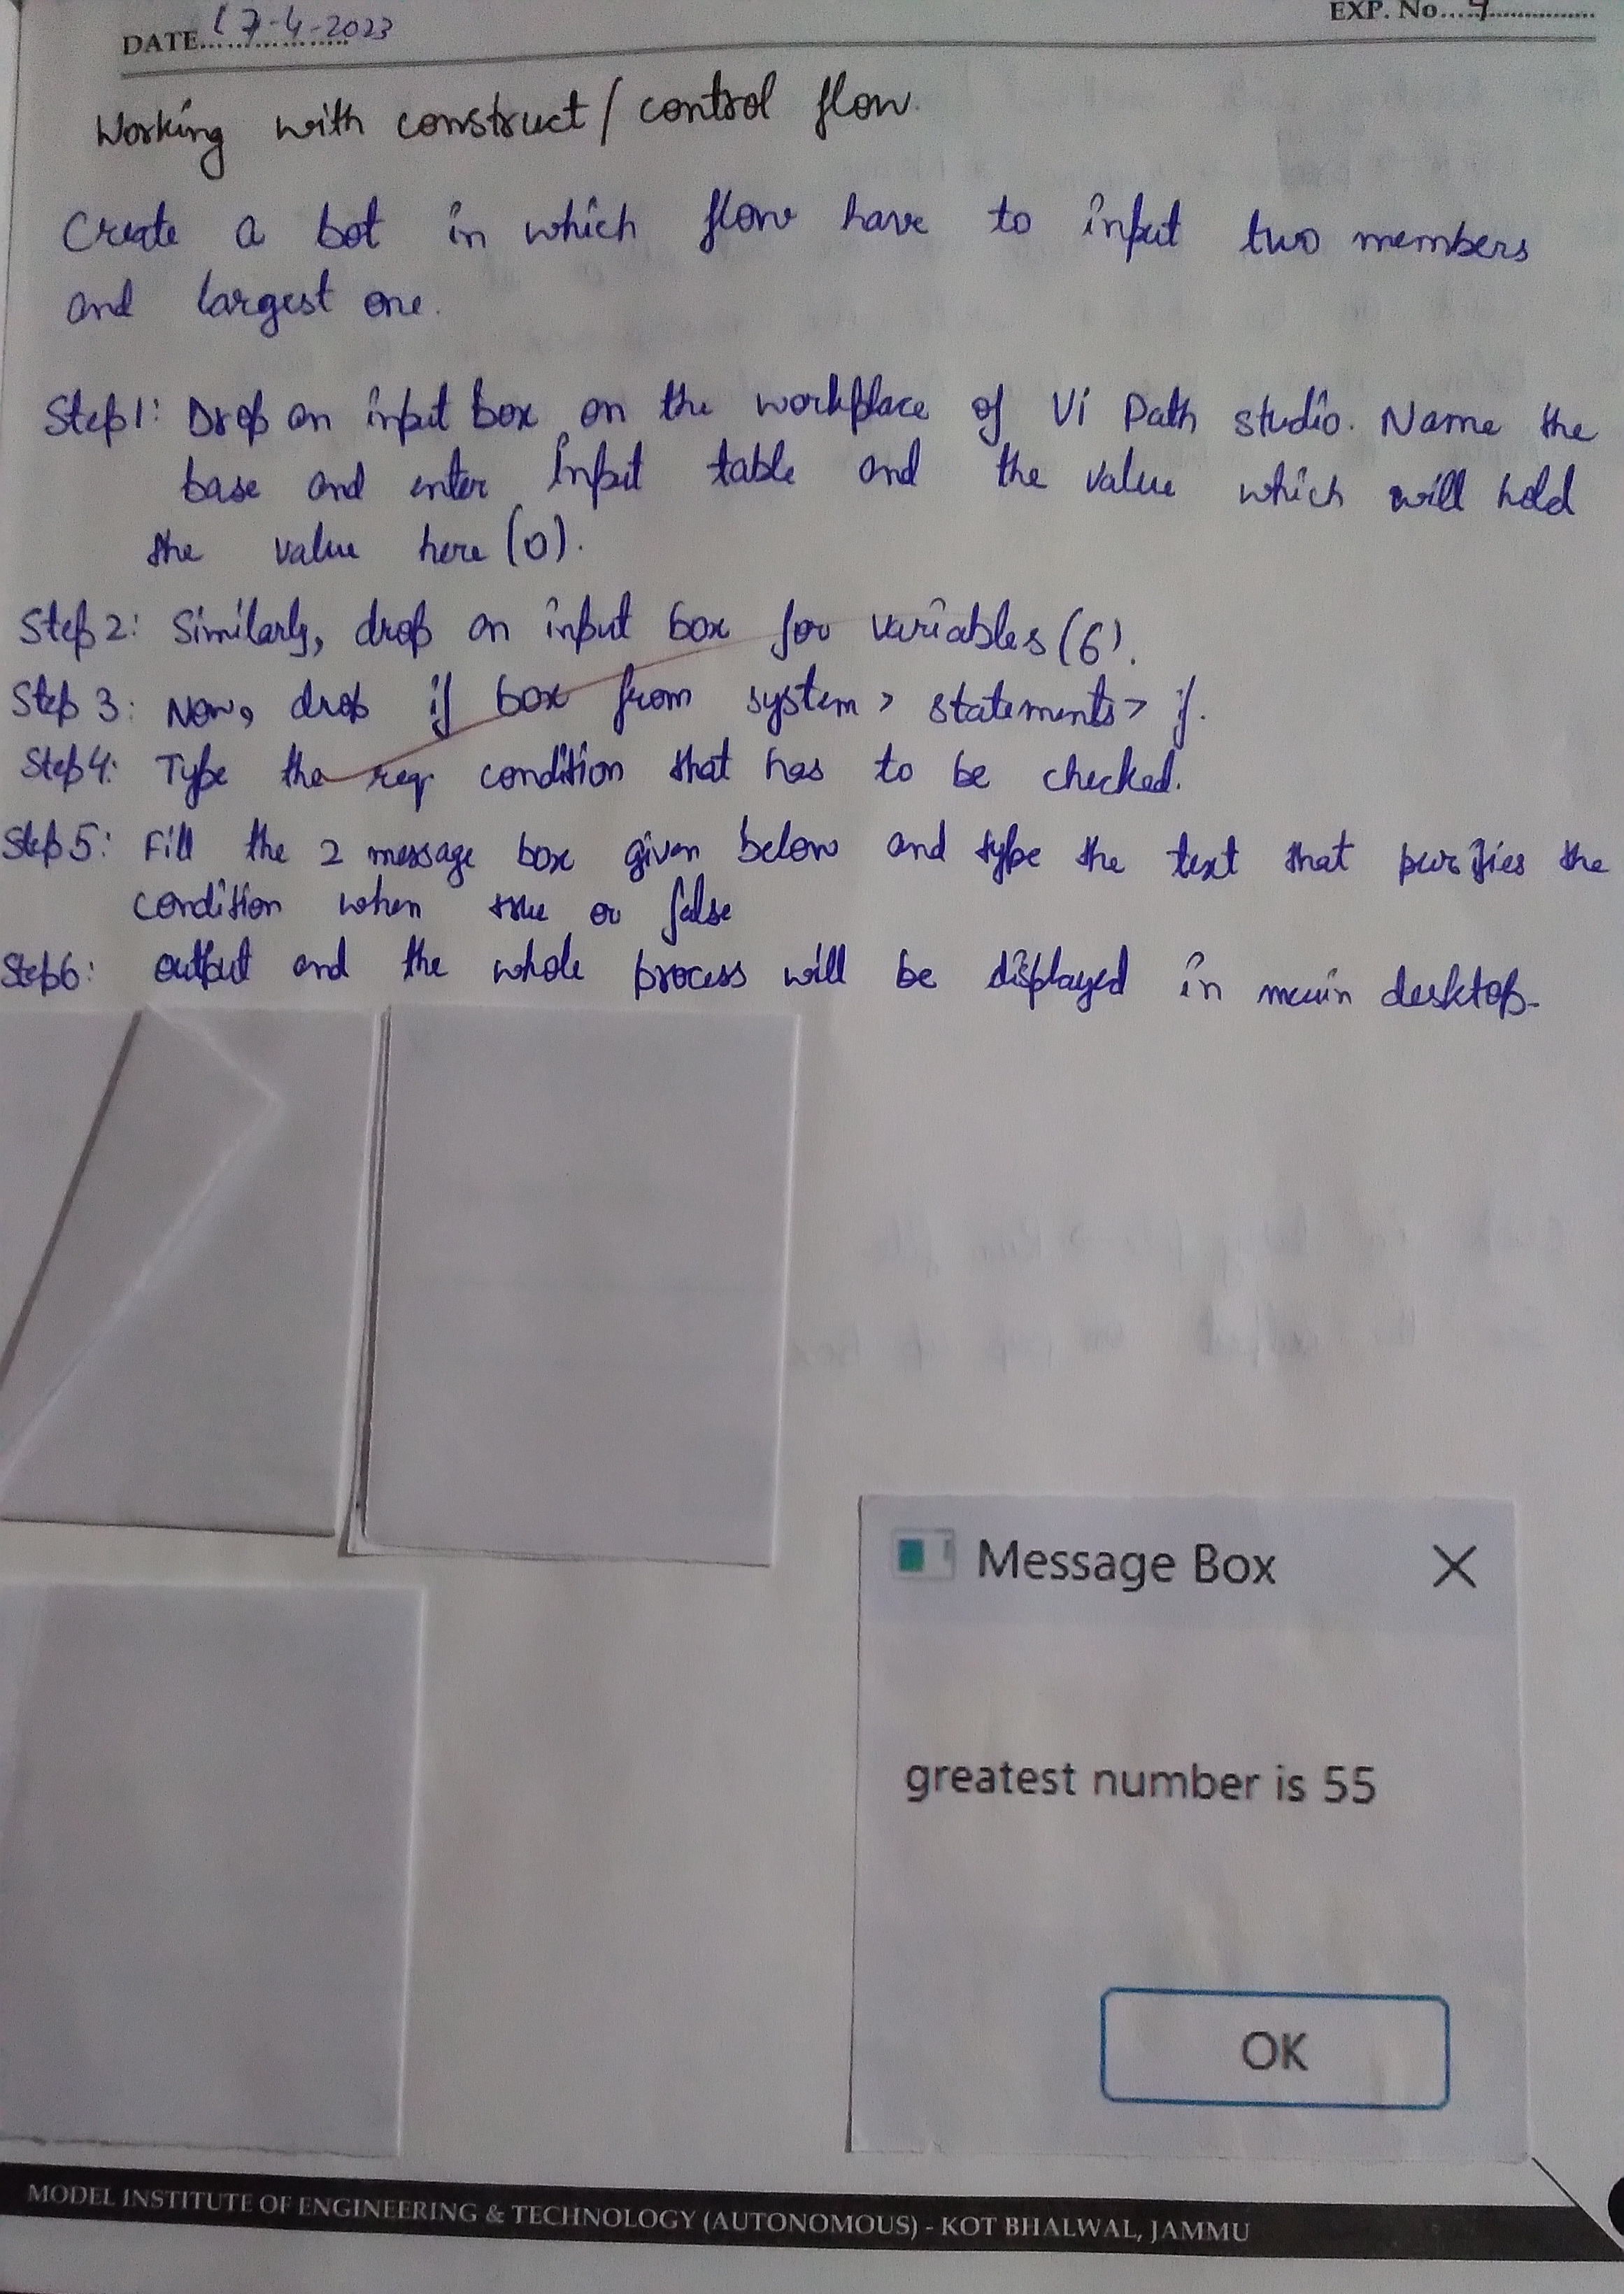 DATE 17-4-2023
EXP. No. 4
Working with construct / control flow.
Create a bot in which flow have to input two members
and largest one.
Step 1: Drop an input box on the workplace of Vi Path studio. Name the
base and enter Input table and the value which will hold
the value here (0).
Step 2: Similarly, drop an input box for variables (6).
Step 3: Now, drop if box from system > statements > if.
Step 4: Type the req condition that has to be checked.
Step 5: Fill the 2 message box given below and type the text that the
condition when true or false
Step 6: output and the whole process will be displayed in main desktop.
Message Box
greatest number is 55
OK
MODEL INSTITUTE OF ENGINEERING & TECHNOLOGY (AUTONOMOUS) - KOT BHALWAL, JAMMU